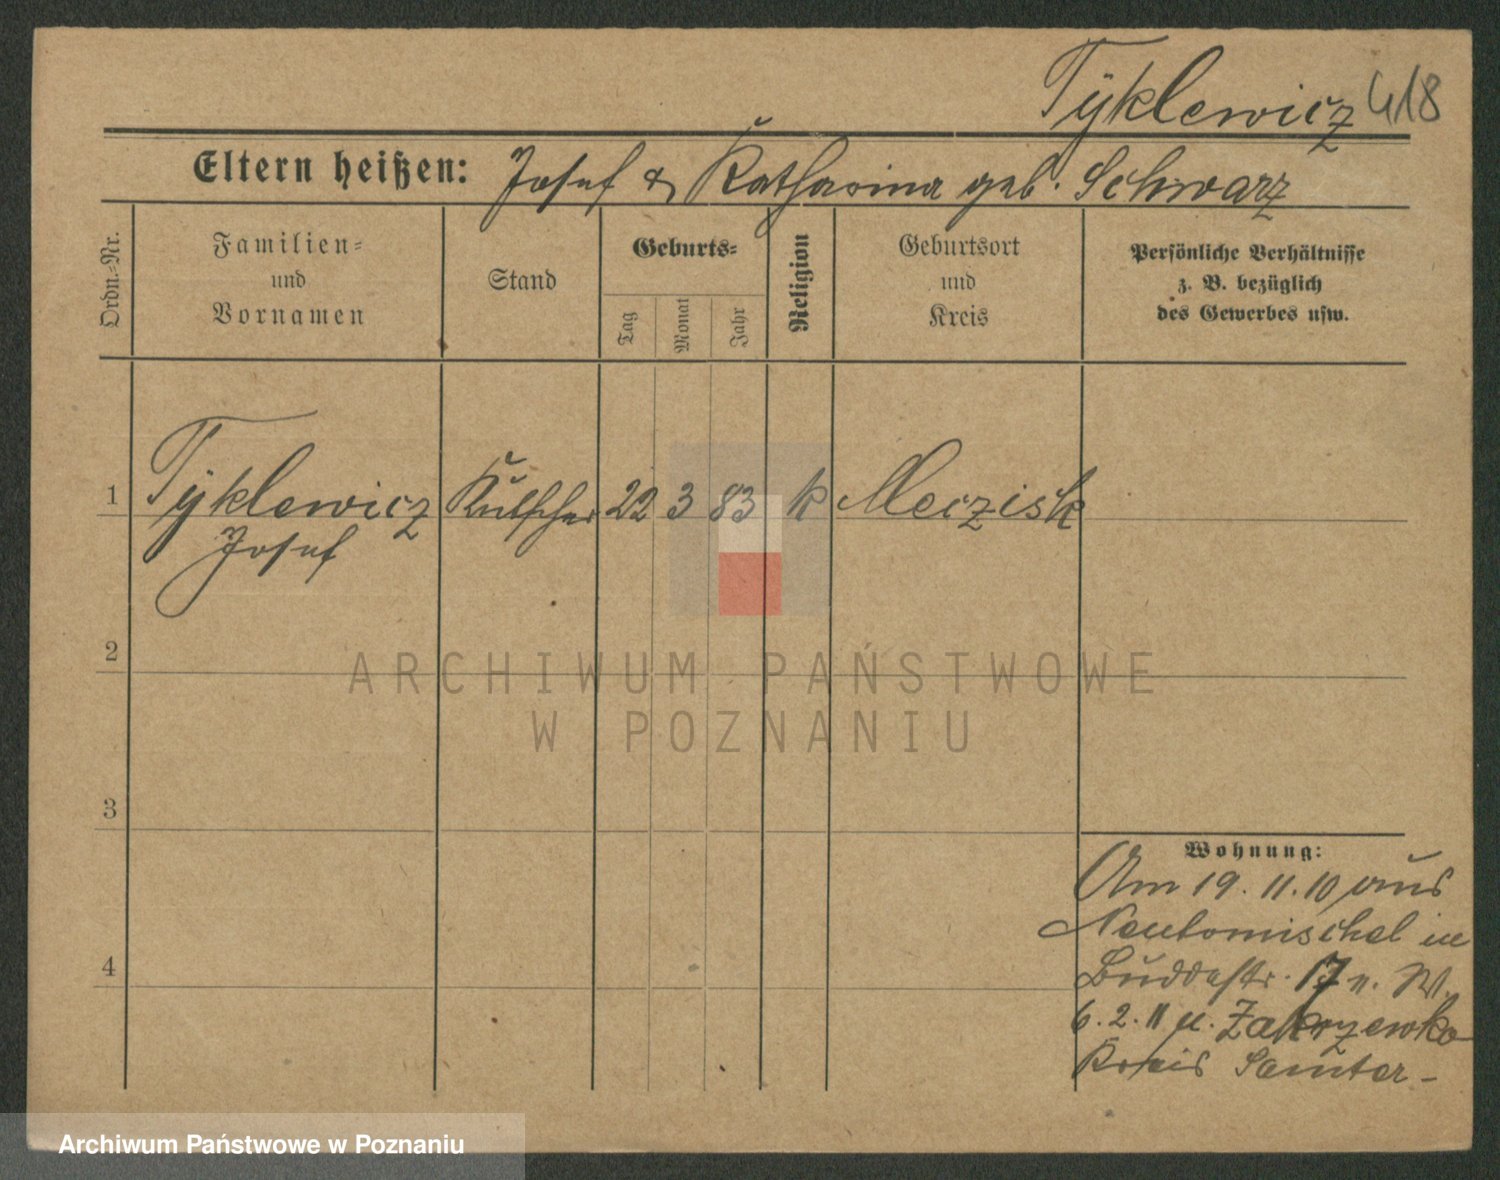 Tÿklewicz 418
Eltern heißen: Josef & Katharina geb. Schwarz
Ordn.-Nr.
Familien-
und
Vornamen
Stand
Geburts-
Tag
Monat
Jahr
Religion
Geburtsort
und
Kreis
Persönliche Verhältnisse
z. B. bezüglich
des Gewerbes usw.
1 Tÿklewicz Kutscher 22 3 83 k Meczisk
Josef
2
ARCHIWUM PAŃSTWOWE
W POZNANIU
3
Wohnung:
Am 19. 11. 10 aus
Neutomischel in
Buddestr. 17 n. W.
4
6. 2. 11 n. Zakrzewko
Kreis Samter -
Archiwum Państwowe w Poznaniu